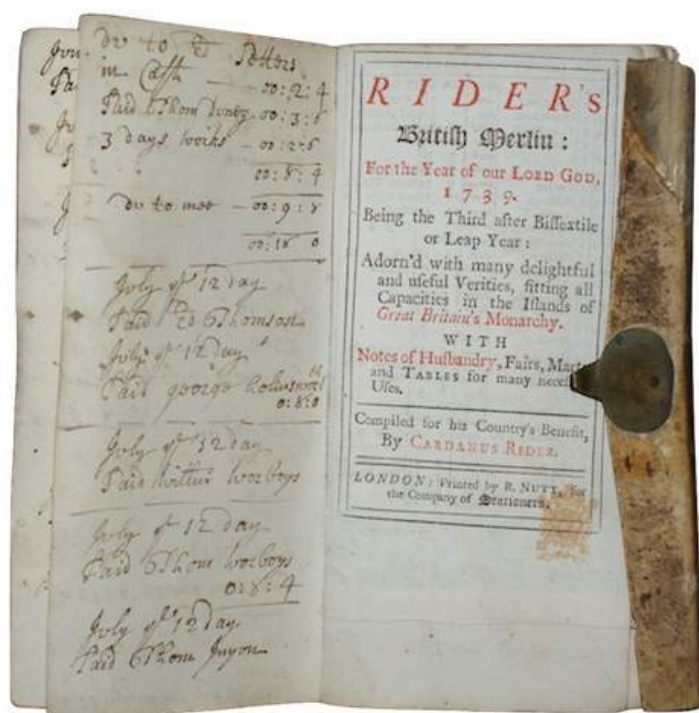 in Cash 00:2:4
3 days works 00:2:6
00:8:4
du to mee 00:9:8
00:18 0
July ye 12 day
Paid Ed Thomson
July ye 12 day
Paid george
0:8:0
July ye 12 day
Paid worboys
July ye 12 day
Paid Thom worboys
0:8:4
July ye 12 day
Paid Thom Inyon
RIDER's
British Merlin:
For the Year of our LORD GOD,
1739.
Being the Third after Bissextile
or Leap Year:
Adorn'd with many delightful
and useful Verities, fitting all
Capacities in the Islands of
Great Britain's Monarchy.
WITH
Notes of Husbandry, Fairs, Mar
and TABLES for many nece
Uses.
Compiled for his Country's Benefit,
By CARDANUS RIDER.
LONDON: Printed by R. NUTT, for
the Company of Stationers.